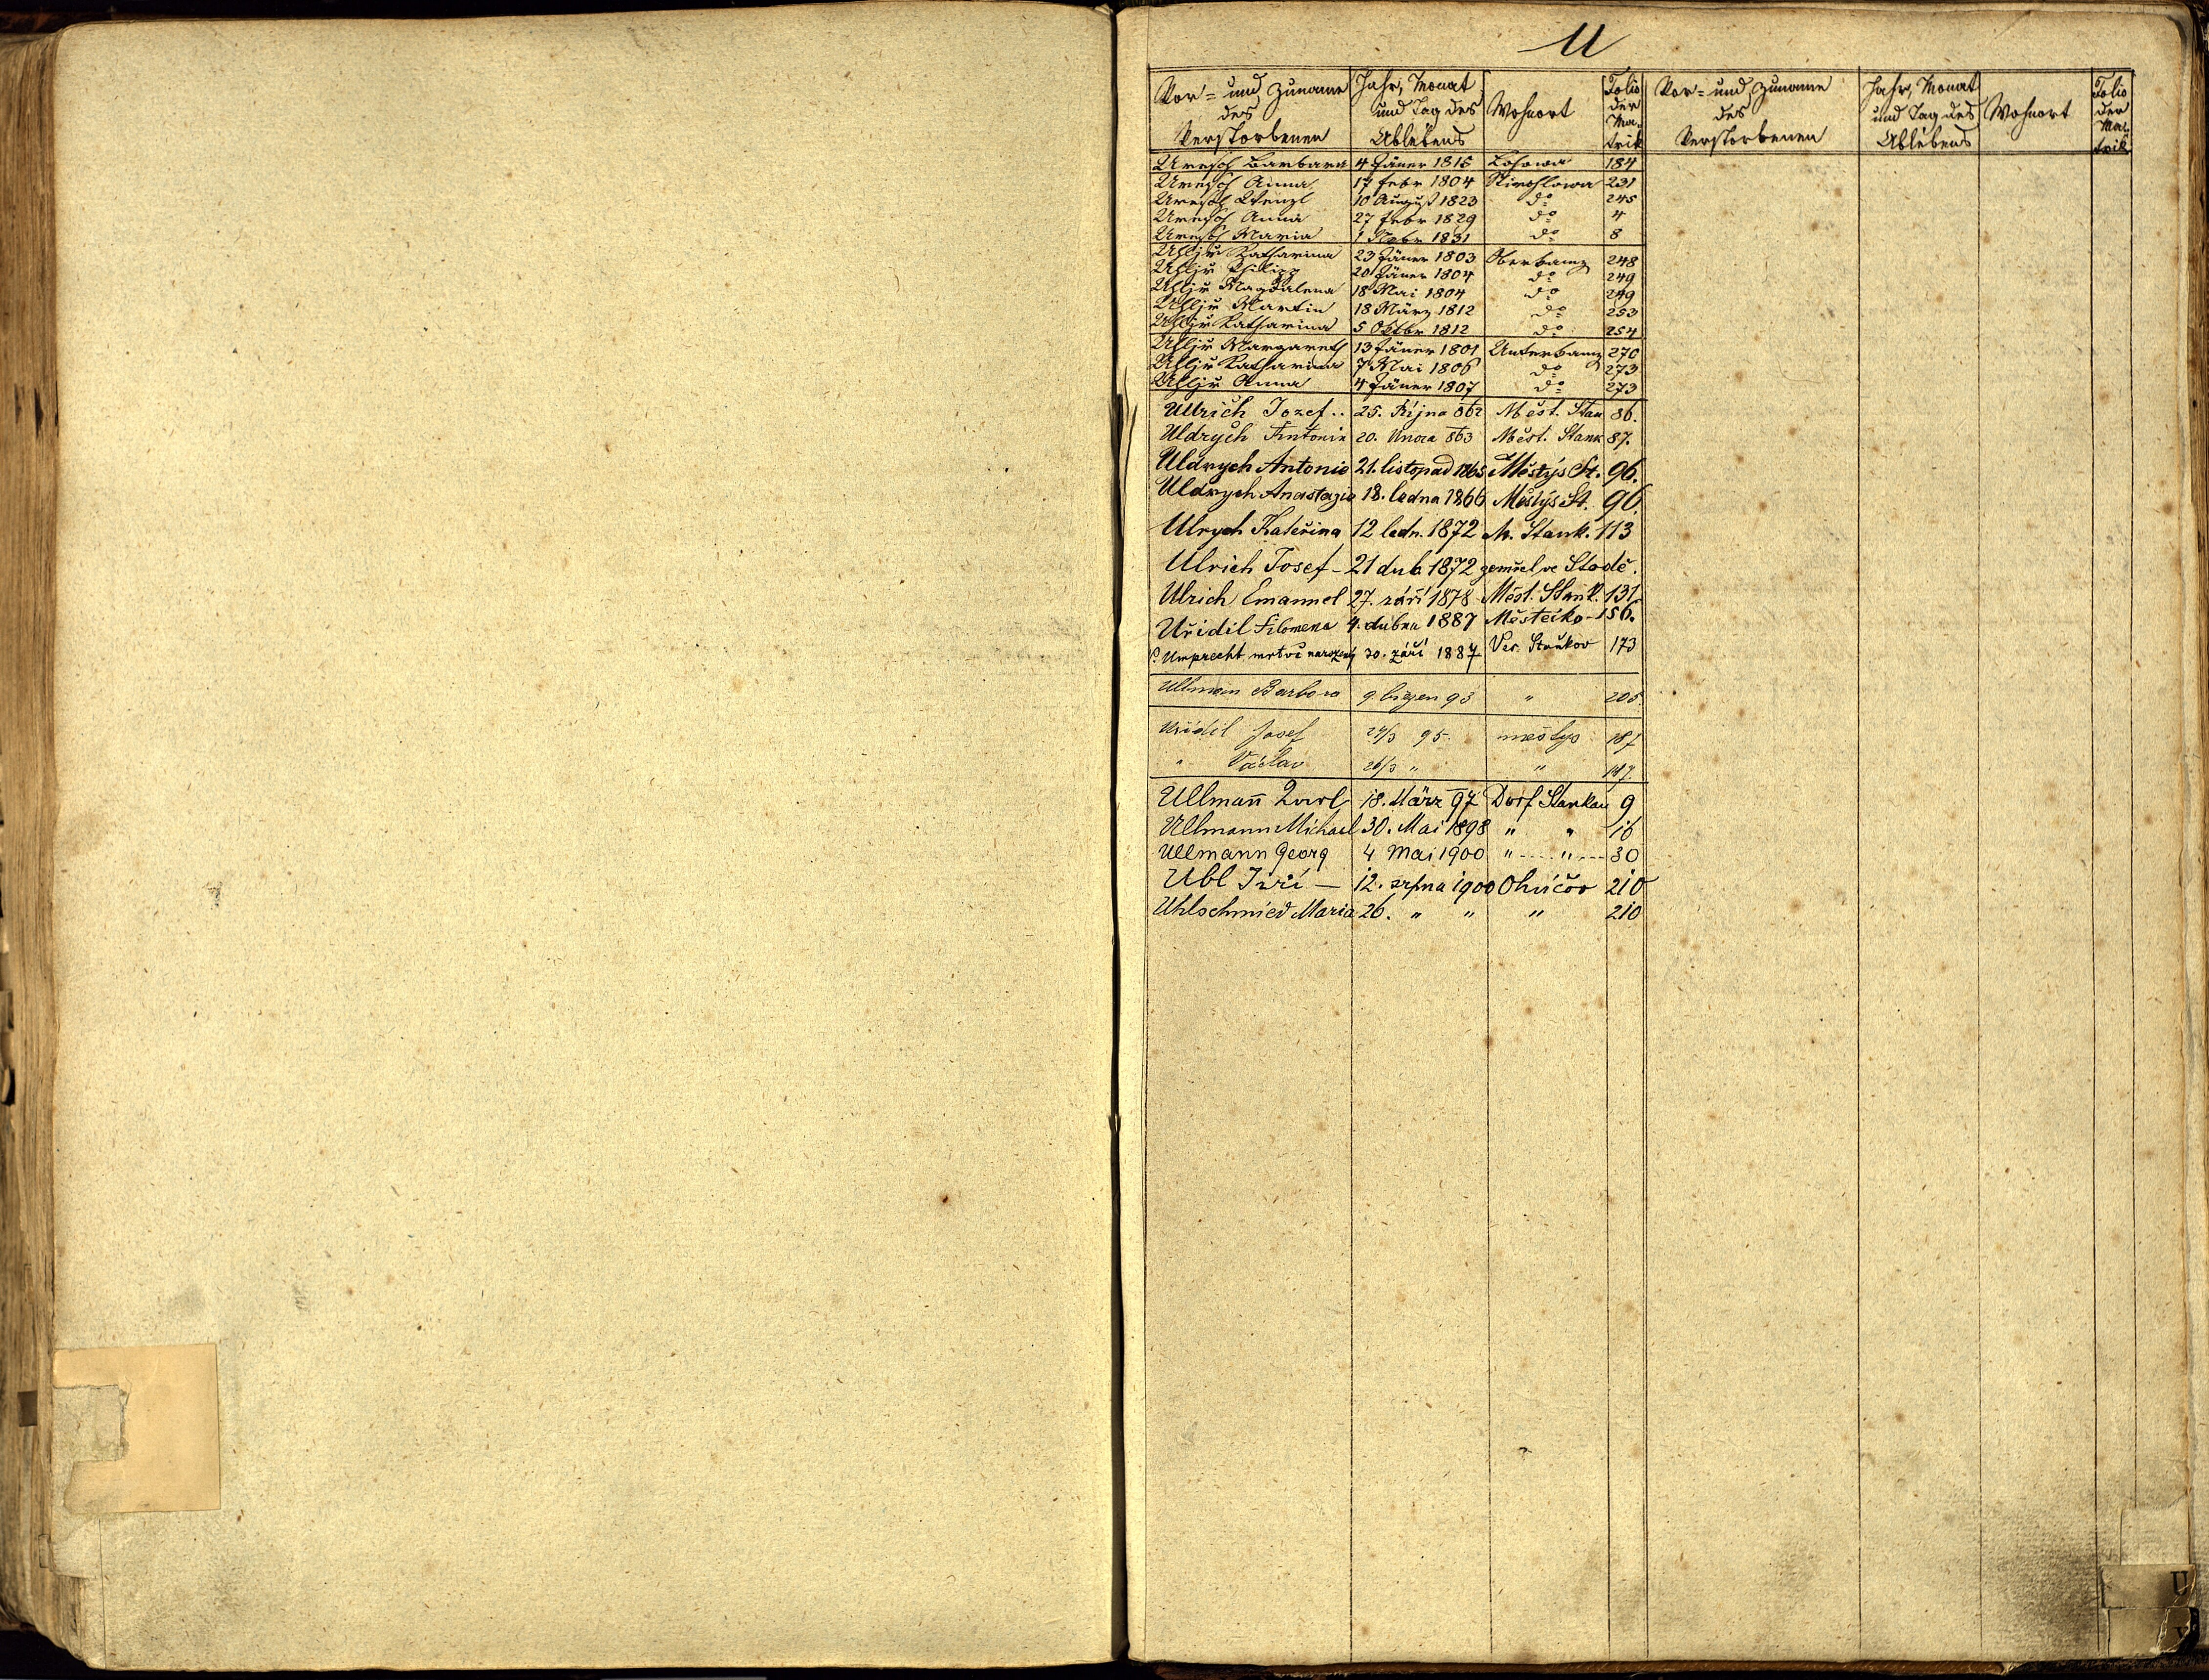 U
Vor- und Zuname des Verstorbenen | Jahr, Monat und Tag des Ablebens | Wohnort | Folio der Matrik | Vor- und Zuname des Verstorbenen | Jahr, Monat und Tag des Ablebens | Wohnort | Folio der Matrik
Uresch Barbara 4 Jäner 1816 Lohowa 184
Uresch Anna 17 Febr 1804 231
Uresch Wenzl 10 August 1823 do 245
Uresch Anna 27 Febr 1829 do 4
Uresch Maria 1 Nobr 1831 do 8
Uhljř Katharina 23 Jäner 1803 Oberkamz 248
Uhljř Philipp 20 Jäner 1804 do 249
Uhljř Magdalena 18 Mai 1804 do 249
Uhljř Martin 18 März 1812 do 253
Uhljř Katharina 5 Oktbr 1812 do 254
Uhljř Margareth 13 Jäner 1801 Unterkamz 270
Uhljř Katharina 7 Mai 1806 do 273
Uhljř Anna 4 Jäner 1807 do 273
Ullrich Jozef .. 25. Října 862 Měst. Stan 86.
Uldrych Antonin 20. Února 863 Měst. Stank 87.
Uldrych Antonie 21. listopad 1865 Městýs St. 96.
Uldrych Anastazie 18. ledna 1866 Městýs St. 96.
Ulrych Kateřina 12 ledn. 1872 M. Stank. 113
Ulrich Josef - 21 dub. 1872 zemřel ve Stodě.
Ulrich Emanuel 27. září 1878 Měst. Stank. 131.
Uřidil Filomena 4. dubna 1887 Městečko - 156.
Umprecht mrtvě narozený 30. září 1887 Ves. Staňkov 173
Ullmann Barbora 9 březen 93 " 205.
Uřidil Josef 24/3 95. městys 187
" Václav 26/3 " " 187.
Ullmann Karl 18. März 97 Dorf Stankau 9
Ullmann Michael 30. Mai 1898 " " 16
Ullmann Georg 4 Mai 1900 " -- " -- 30
Ubl Jiří — 12. srpna 1900 Ohučov 210
Uhlschmied Maria 26. " " " 210
U
V